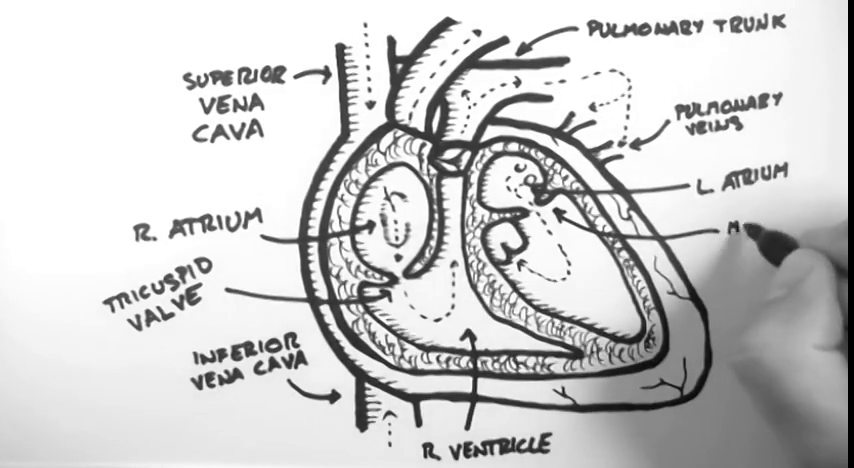 PULMONARY TRUNK
SUPERIOR
VENA
CAVA
PULMONARY
VEINS
L. ATRIUM
R. ATRIUM
M
TRICUSPID
VALVE
INFERIOR
VENA CAVA
R. VENTRICLE